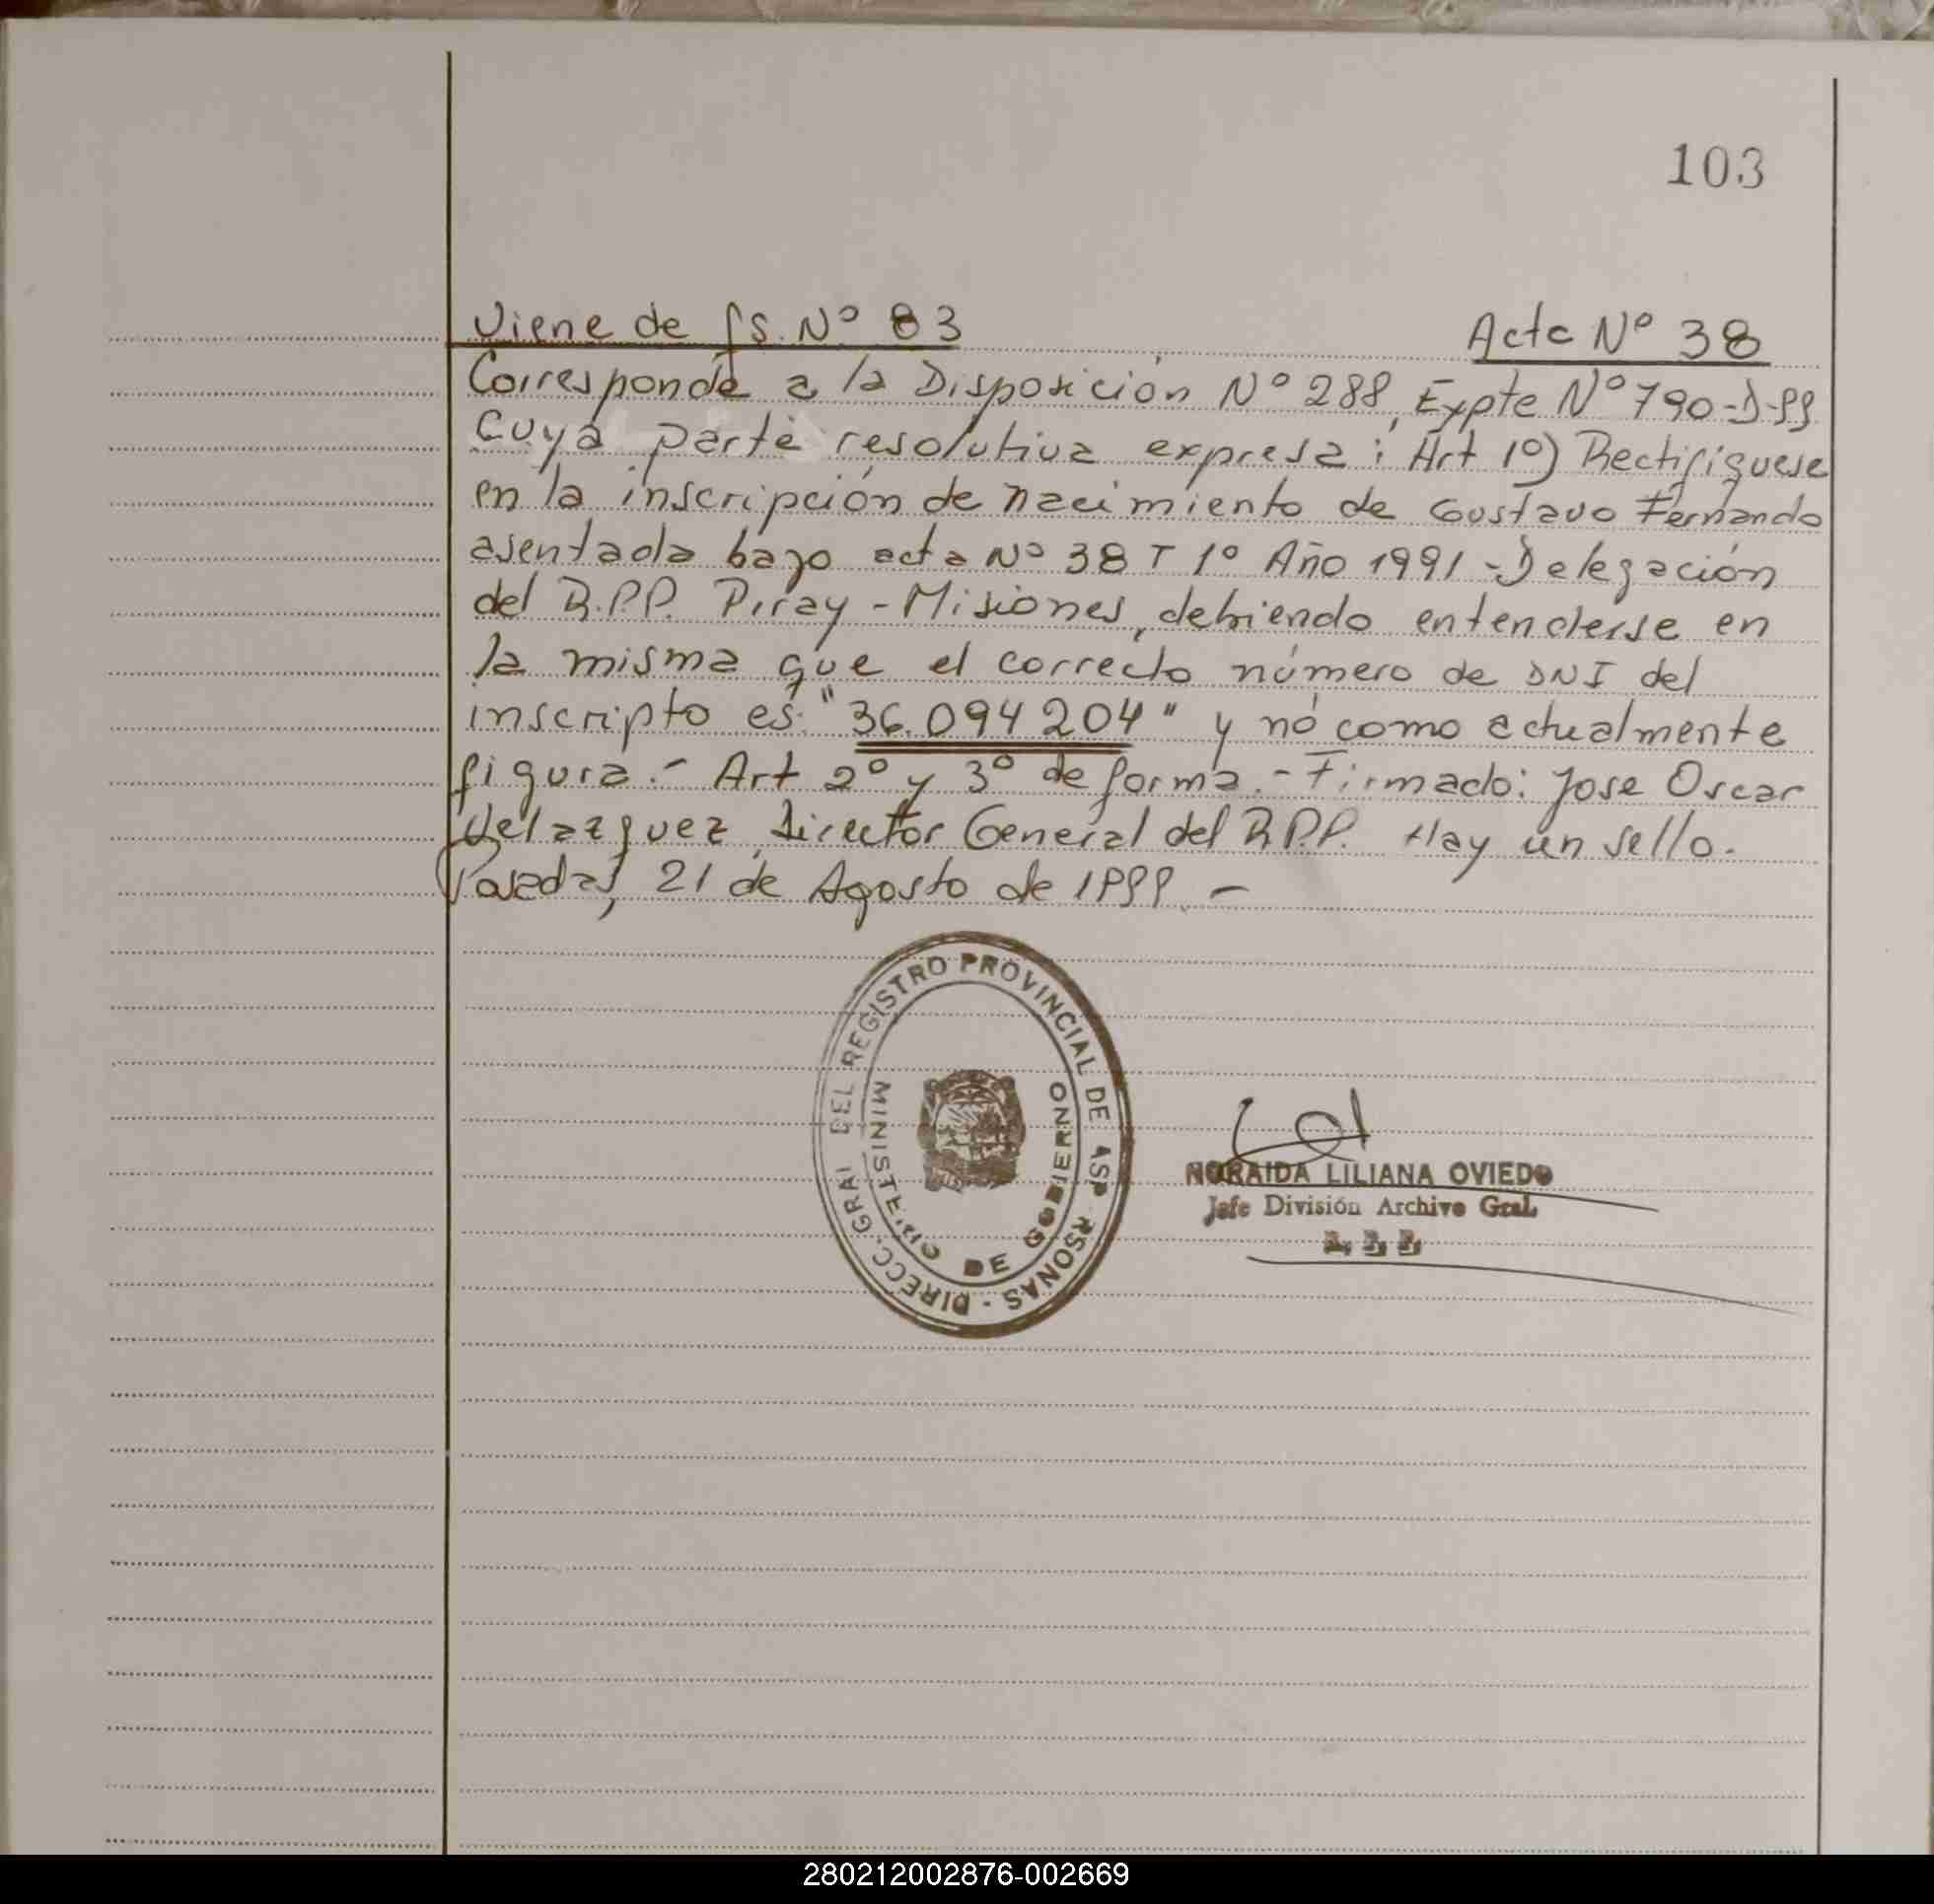 103
Viene de fs. Nº 83
Acta Nº 38
Corresponde a la Disposición Nº 288, Expte Nº 790-D-99
cuya parte resolutiva expresa: Art 1º) Rectifíquese
en la inscripción de nacimiento de Gustavo Fernando
asentada bajo acta Nº 38 T 1º Año 1991 - Delegación
del R.P.P. Piray - Misiones, debiendo entenderse en
la misma que el correcto número de DNI del
inscripto es: "36.094204" y nó como actualmente
figura.- Art 2º y 3º de forma.- Firmado: Jose Oscar
Velazquez, Director General del R.P.P. Hay un sello.
Posadas, 21 de Agosto de 1999.-
DIRECC. GRAL DEL REGISTRO PROVINCIAL DE
MINISTERIO DE GOBIERNO
NORAIDA LILIANA OVIEDO
Jefe División Archivo Gral.
R. P. P.
280212002876-002669